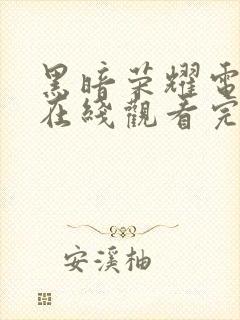 黑暗荣耀電
在綫觀看完
安溪柚